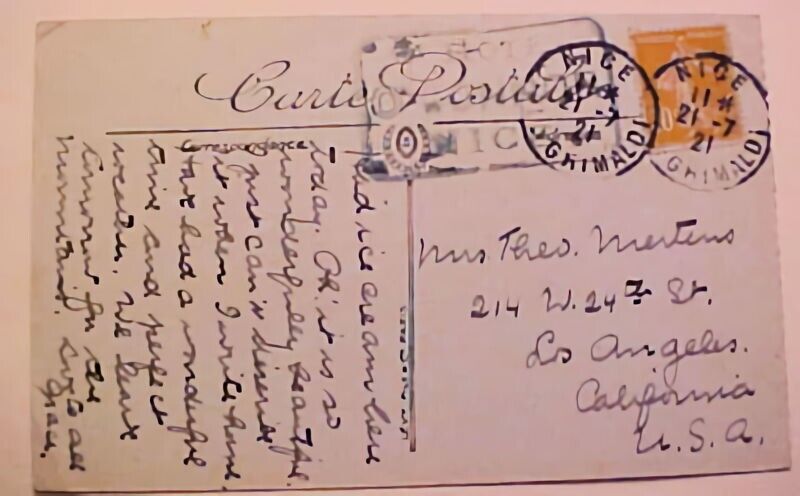 Carte Postale
Correspondance
HOTEL
NICE
NICE
11 *
21 -7
21
GRIMALDI
NICE
11 *
21 -7
21
GRIMALDI
had ice cream here
today. Oh! it is so
wonderfully beautiful
just can't describe
it when I write home.
Have had a wonderful
time and perfect
weather. We leave
tomorrow for the
mountains. Love to all
Mrs Theo. Mertens
214 W. 24th St.
Los Angeles.
California
U.S.A.